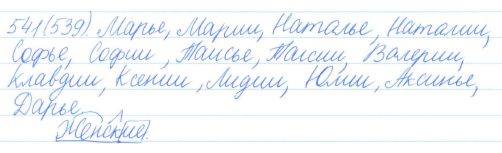 541(539). Марье, Марии, Наталье, Наталии,
Софье, Софии, Таисье, Таисии, Валерии,
Клавдии, Ксении, Лидии, Юлии, Аксинье,
Дарье.
Женские.